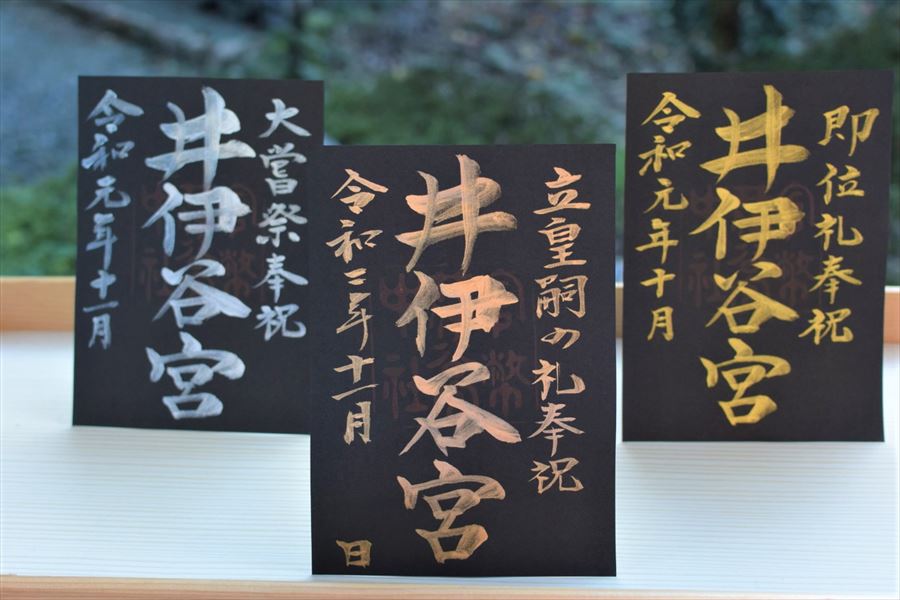 大嘗祭奉祝
井伊谷宮
令和元年十一月
立皇嗣の礼奉祝
井伊谷宮
令和二年十一月
日
即位礼奉祝
井伊谷宮
令和元年十月